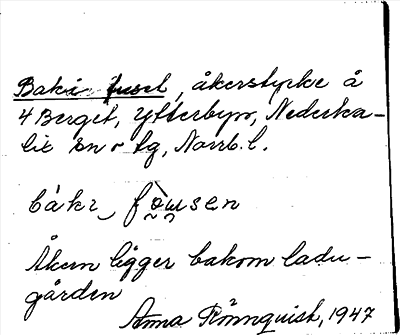 Baki fusel, åkerstycke å
4 Berget, Ytterbyn, Nederka-
lix sn o tg, Norrb. l.
Åkern ligger bakom ladu-
gården
Anna Rönnquist, 1947